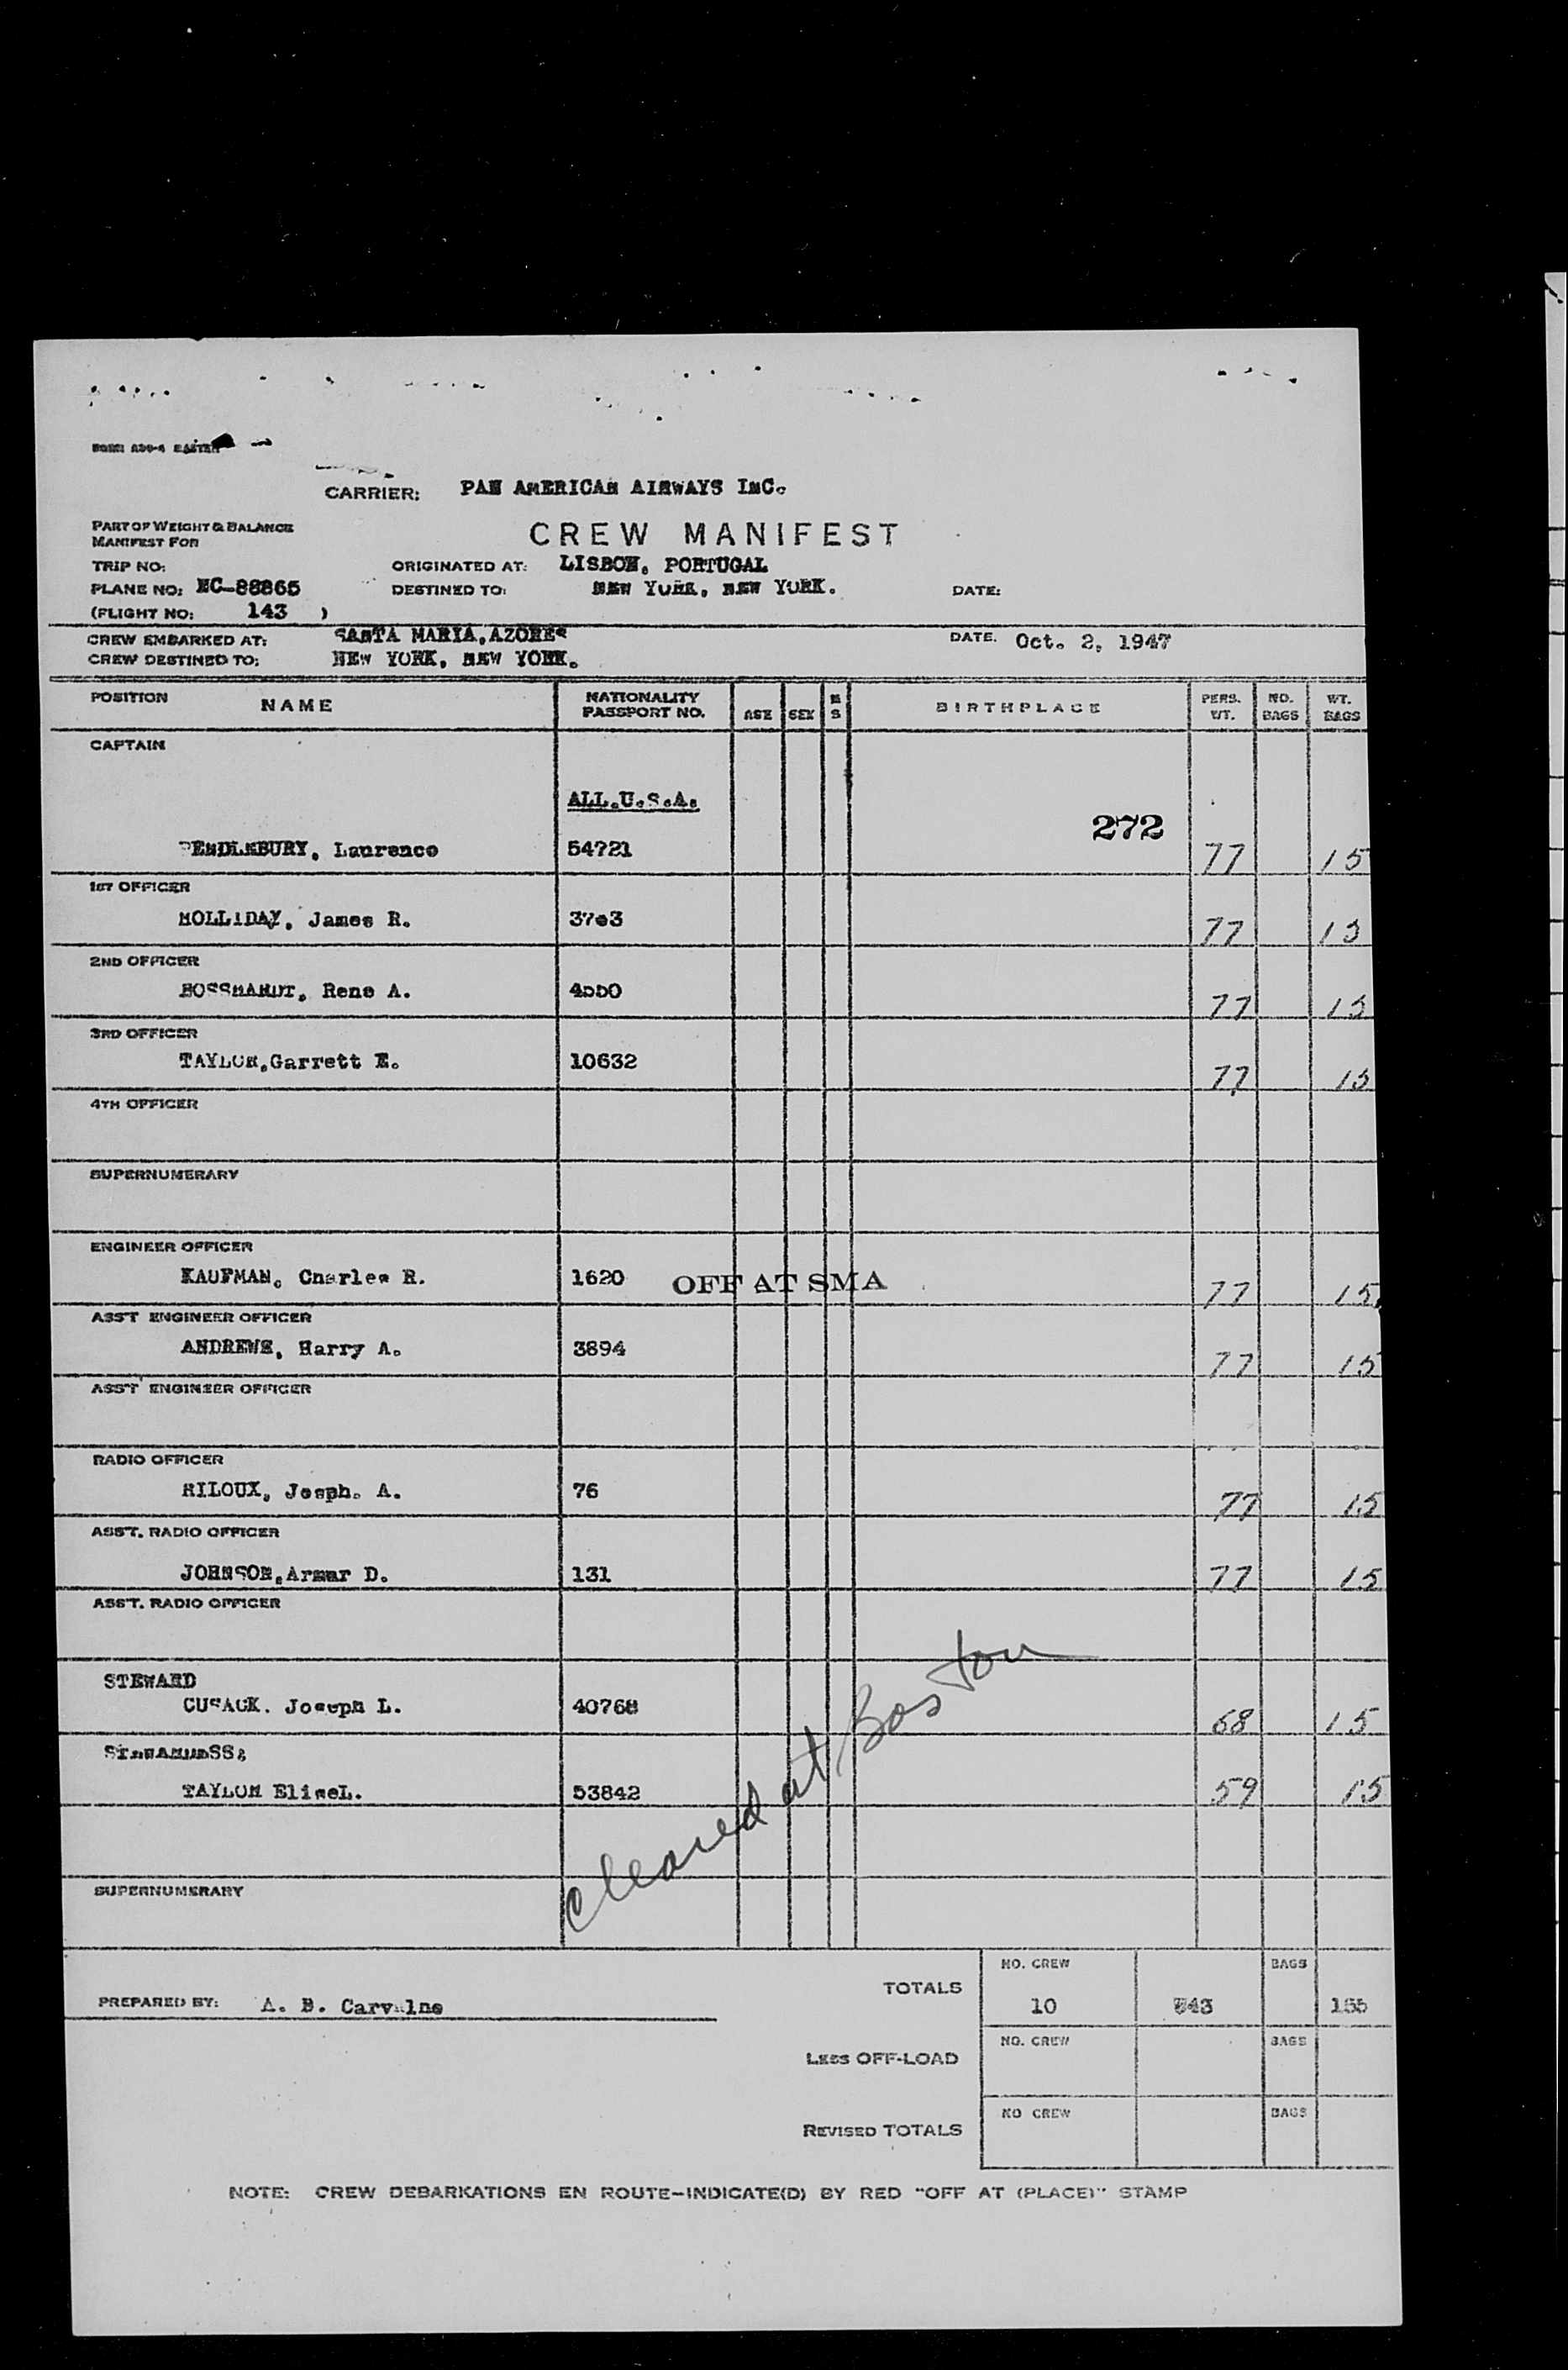 CARRIER: PAN AMERICAN AIRWAYS INC.
PART OF WEIGHT & BALANCE
MANIFEST FOR
CREW MANIFEST
TRIP NO:
ORIGINATED AT: LISBON, PORTUGAL
PLANE NO: NC-88865
DESTINED TO: NEW YORK, NEW YORK.
DATE:
(FLIGHT NO: 143 )
CREW EMBARKED AT: SANTA MARIA, AZORES
DATE. Oct. 2, 1947
CREW DESTINED TO: NEW YORK, NEW YORK.
POSITION NAME NATIONALITY PASSPORT NO. AGE SEX M S BIRTHPLACE PERS. WT. NO. BAGS WT. BAGS
CAPTAIN
ALL.U.S.A.
272
PENDLEBURY, Laurence 54721 77 15
1ST OFFICER
HOLLIDAY, James R. 77 13
2ND OFFICER
BOSSHARDT, Rene A. 77 13
3RD OFFICER
TAYLOR,Garrett E. 10632 77 13
4TH OFFICER
SUPERNUMERARY
ENGINEER OFFICER
KAUFMAN, Charles R. 1620 OFF AT SMA 77 15
ASS'T ENGINEER OFFICER
ANDREWS, Harry A. 3894 77 15
ASS'T ENGINEER OFFICER
RADIO OFFICER
RILOUX, Jesph. A. 76 77 15
ASS'T. RADIO OFFICER
JOHNSON,Armar D. 131 77 15
ASS'T. RADIO OFFICER
STEWARD
CUSACK. Joseph L. 40768 68 15
STEWARDESS:
TAYLOR EliseL. 53842 59 15
cleared at Boston
SUPERNUMERARY
TOTALS
NO. CREW
BAGS
PREPARED BY: A. B. Carvalho
10 743 155
LESS OFF-LOAD
NO. CREW
BAGS
REVISED TOTALS
NO CREW
BAGS
NOTE: CREW DEBARKATIONS EN ROUTE-INDICATE(D) BY RED "OFF AT (PLACE)" STAMP